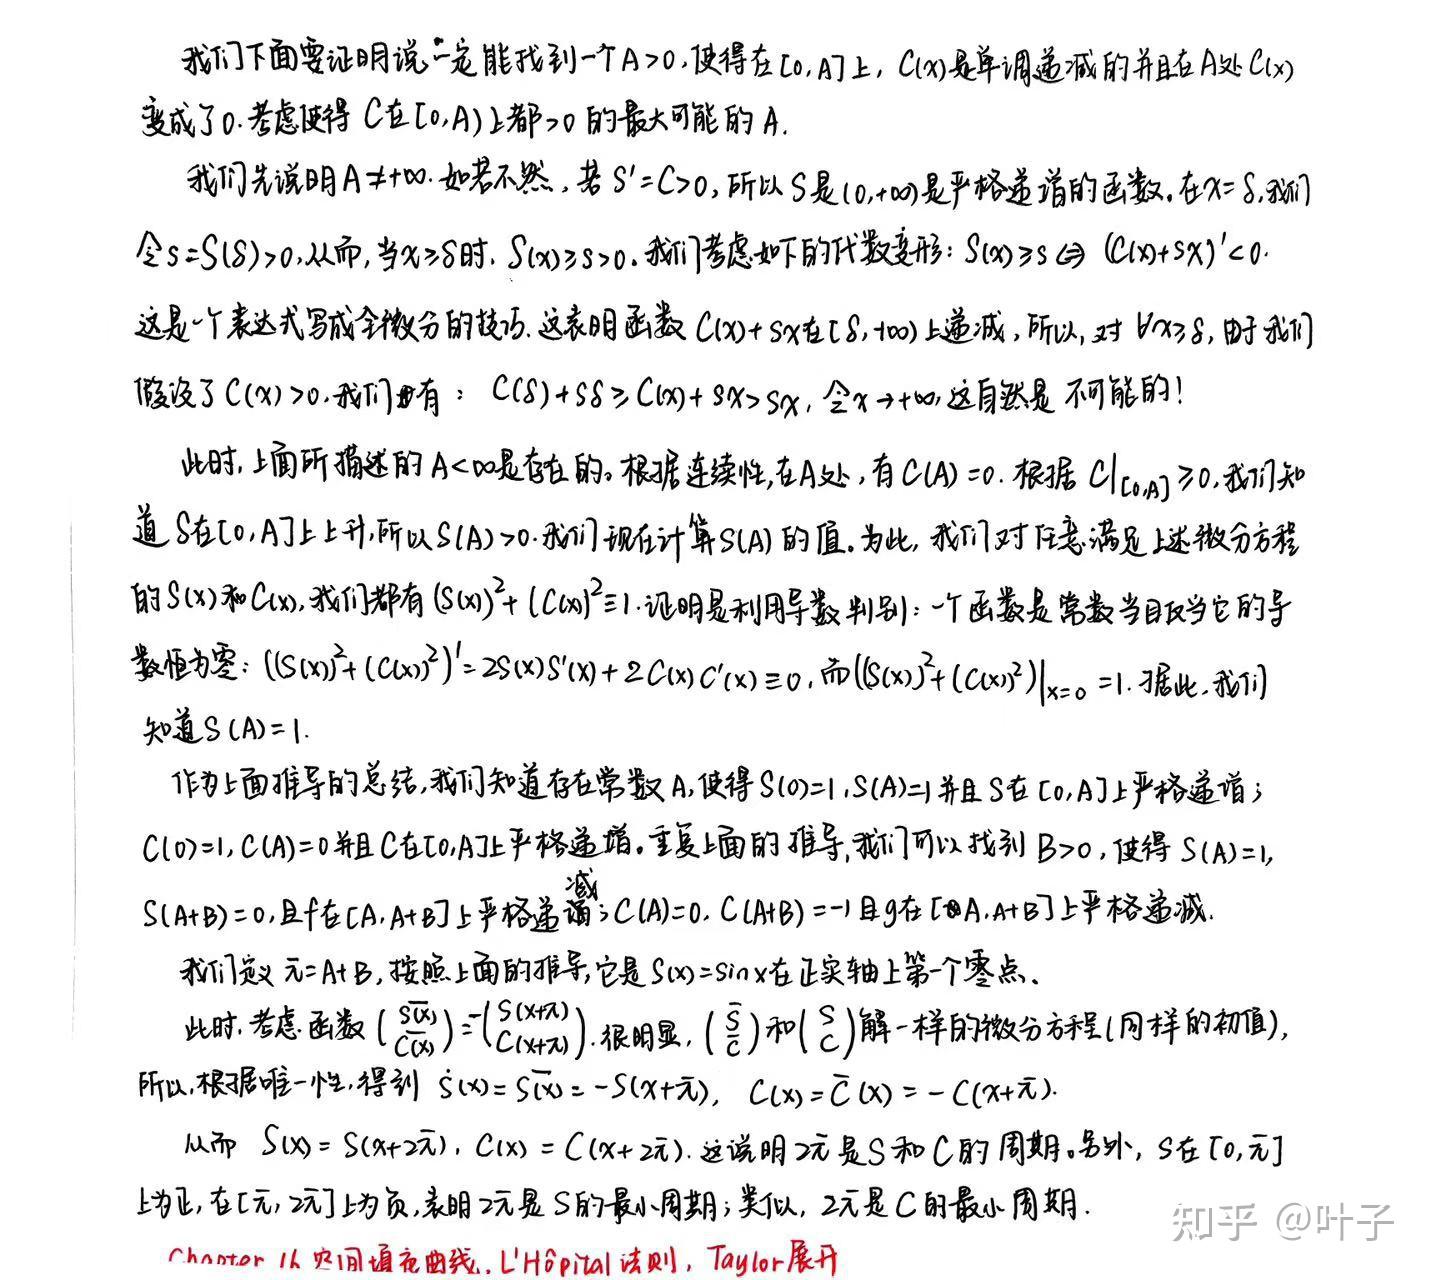 我们下面要证明说一定能找到一个A>0,使得在[0,A]上,C(x)是单调递减的并且在A处C(x)
变成了0.考虑使得C在[0,A)上都>0的最大可能的A.
我们先说明A≠+∞.如若不然,若S'=C>0,所以S是(0,+∞)是严格递增的函数。在x=δ,我们
令s=S(δ)>0,从而,当x≥δ时,S(x)≥s>0.我们考虑如下的代数变形:S(x)≥s⇔(C(x)+sx)'<0.
这是一个表达式写成全微分的技巧.这表明函数C(x)+sx在[δ,+∞)上递减,所以,对∀x≥δ,由于我们
假设了C(x)>0,我们有:C(δ)+sδ≥C(x)+sx>sx,令x→+∞,这自然是不可能的!
此时,上面所描述的A<∞是存在的。根据连续性,在A处,有C(A)=0.根据C|[0,A]≥0,我们知
道S在[0,A]上上升,所以S(A)>0.我们现在计算S(A)的值。为此,我们对任意满足上述微分方程
的S(x)和C(x),我们都有(S(x))²+(C(x)²≡1.证明是利用导数判别:一个函数是常数当且仅当它的导
数恒为零:((S(x))²+(C(x))²)'=2S(x)S'(x)+2C(x)C'(x)≡0,而((S(x))²+(C(x))²)|x=0=1.据此,我们
知道S(A)=1.
作为上面推导的总结,我们知道存在常数A,使得S(0)=1,S(A)=1并且S在[0,A]上严格递增;
C(0)=1,C(A)=0并且C在[0,A]上严格递增。重复上面的推导,我们可以找到B>0,使得S(A)=1,
S(A+B)=0,且f在[A,A+B]上严格递减;C(A)=0,C(A+B)=-1且g在[A,A+B]上严格递减.
我们定义π=A+B,按照上面的推导,它是S(x)=sinx在正实轴上第一个零点、
此时,考虑函数(S̄(x) C̄(x))=-(S(x+π) C(x+π)).很明显,(S̄ C̄)和(S C)解一样的微分方程(同样的初值),
所以,根据唯一性,得到S(x)=S̄(x)=-S(x+π),C(x)=C̄(x)=-C(x+π).
从而S(x)=S(x+2π),C(x)=C(x+2π).这说明2π是S和C的周期。另外,S在[0,π]
上为正,在[π,2π]上为负,表明2π是S的最小周期;类似,2π是C的最小周期.
知乎 @叶子
Chapter 16 空间填充曲线,L'Hôpital法则,Taylor展开